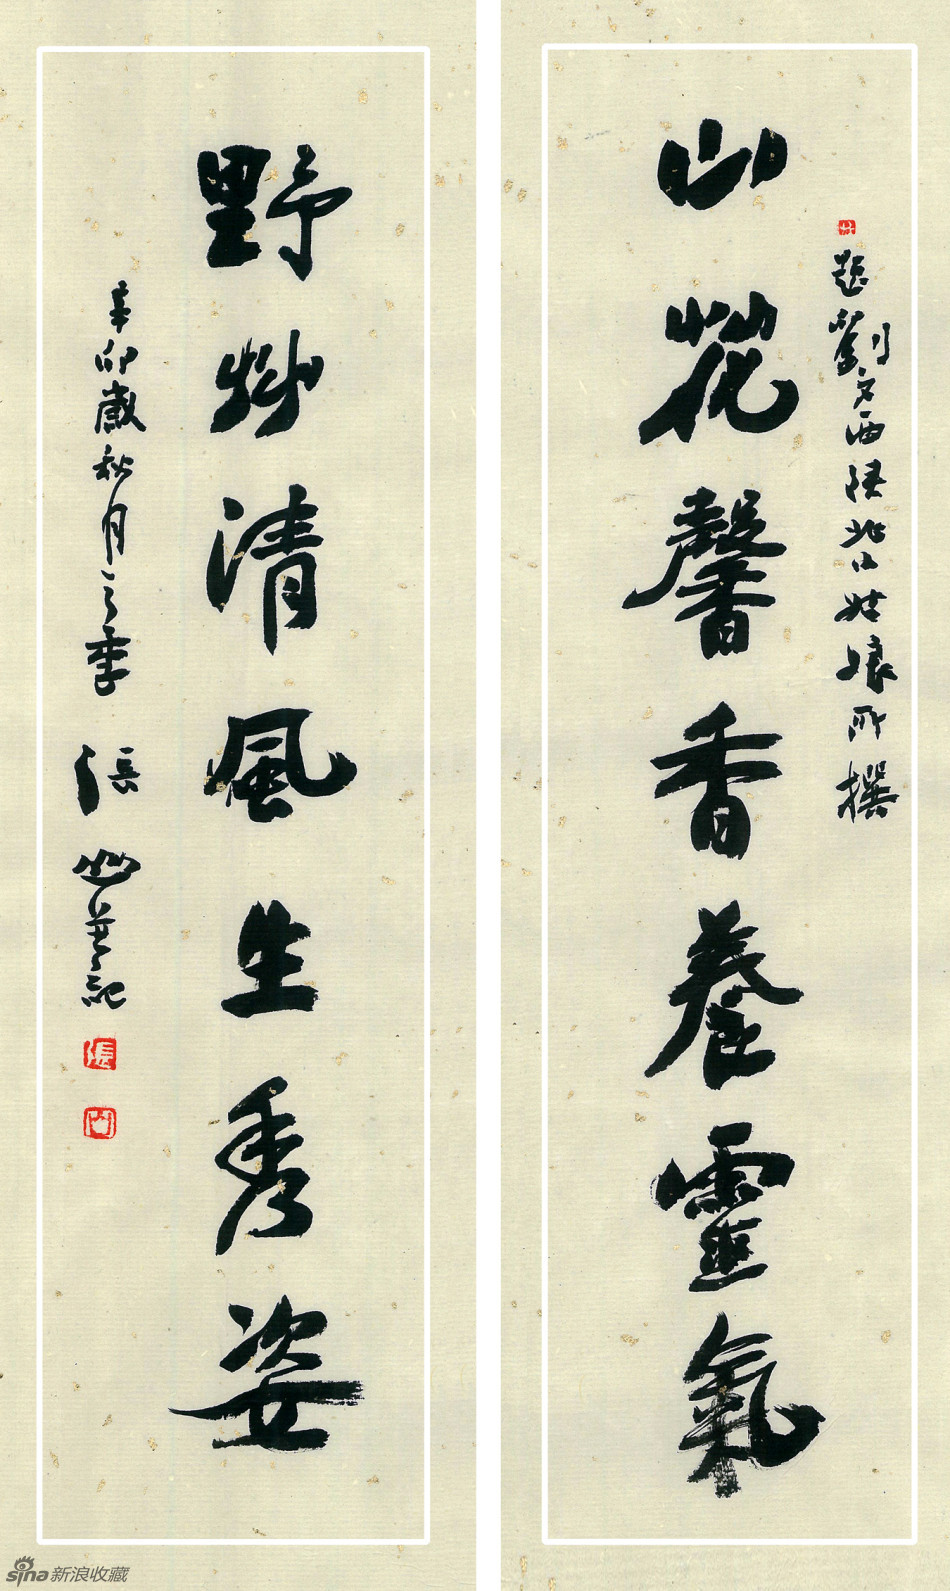 題劉文西陝北小姑娘所撰
山花馨香養靈氣
野艸清風生秀姿
辛卯歲秋月之季 張 記
張
sina新浪收藏